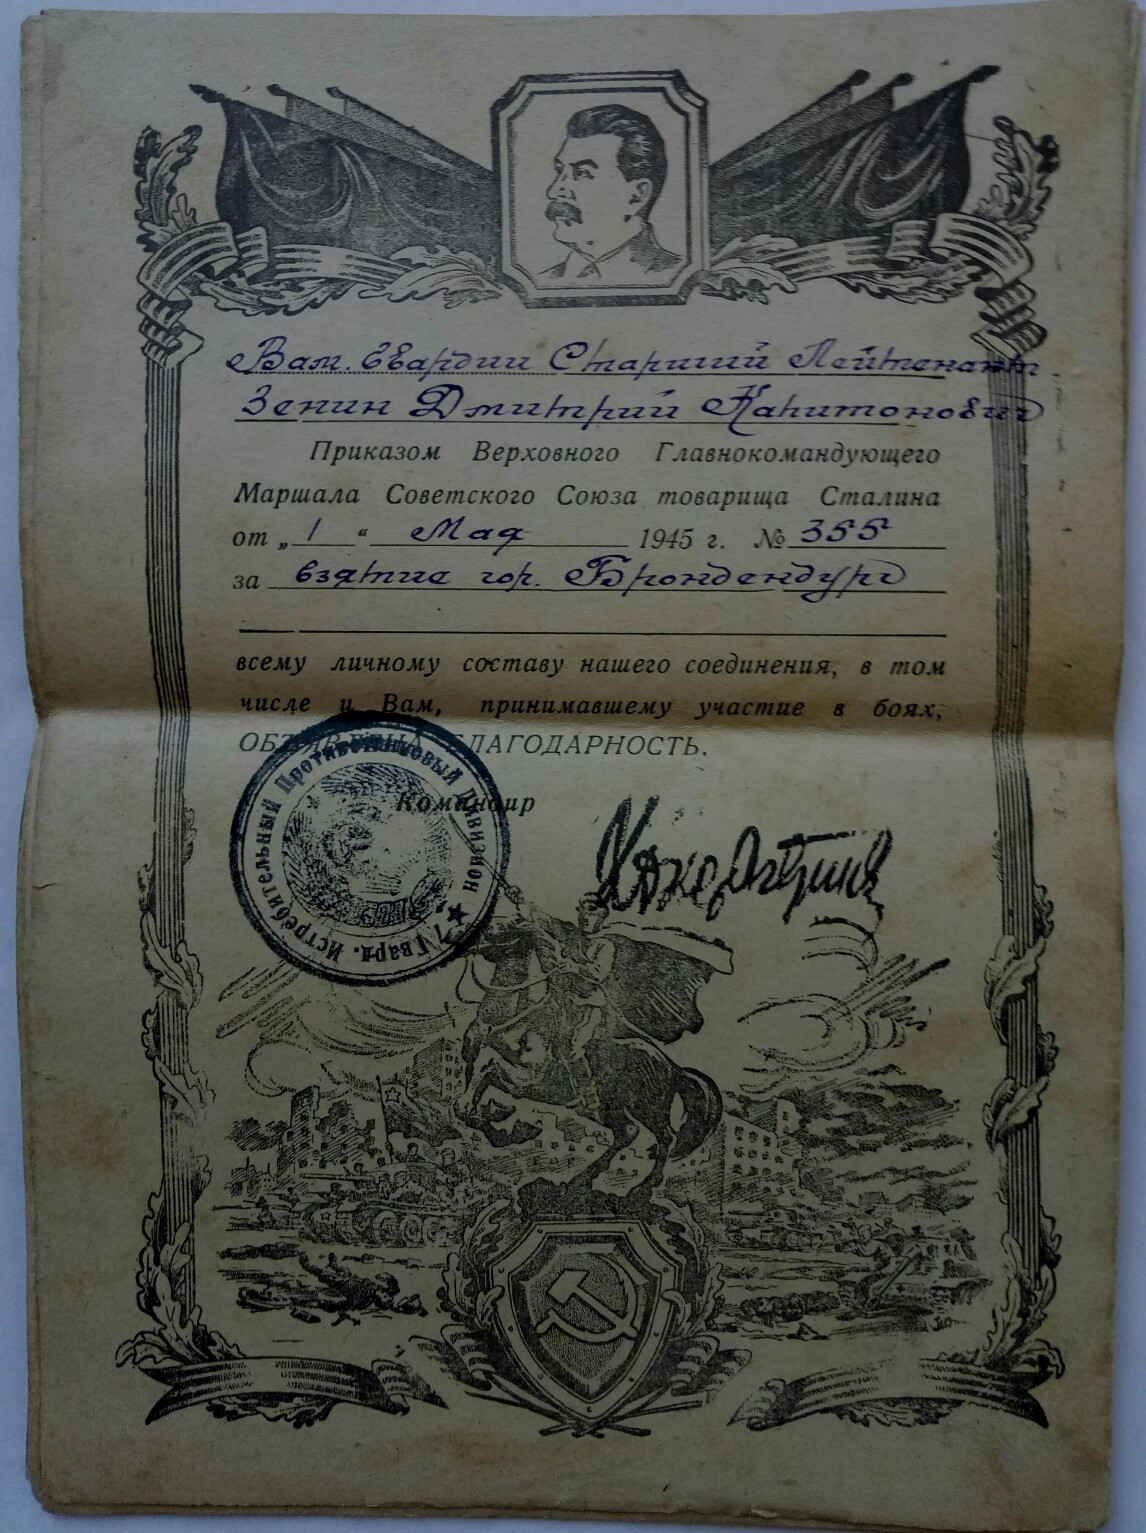 Вам. Гвардии Старший Лейтенант
Зенин Дмитрий Капитонович
Приказом Верховного Главнокомандующего
Маршала Советского Союза товарища Сталина
от „ 1 “ Мая 1945 г. № 355
за взятие гор. Бронденбург
всему личному составу нашего соединения, в том
числе и Вам, принимавшему участие в боях,
ОБЪЯВЛЕНА БЛАГОДАРНОСТЬ.
Командир
7 Гвард. Истребительный Противотанковый Дивизион